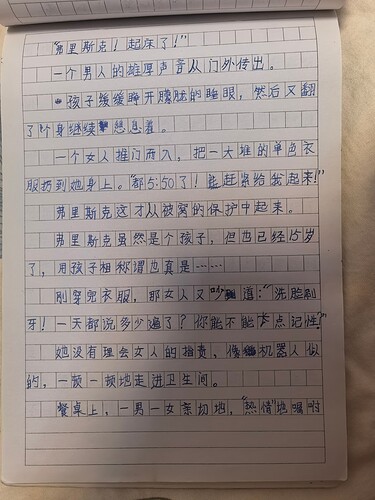 "弗里斯克！起床了！"
一个男人的雄厚声音从门外传出。
孩子缓缓睁开朦胧的睡眼，然后又翻
了个身继续憩息着。
一个女人推门而入，把一大堆的单色衣
服扔到她身上。"都5:50了！赶紧给我起来！"
弗里斯克这才从被窝的保护中起来。
弗里斯克虽然是个孩子，但也已经15岁
了，用孩子相称谓也真是……
刚穿完衣服，那女人又吵道："洗脸刷
牙！一天都说多少遍了？你能不能长点记性？"
她没有理会女人的指责，像机器人似
的，一顿一顿地走进卫生间。
餐桌上，一男一女亲切地，"热情"地嘱咐